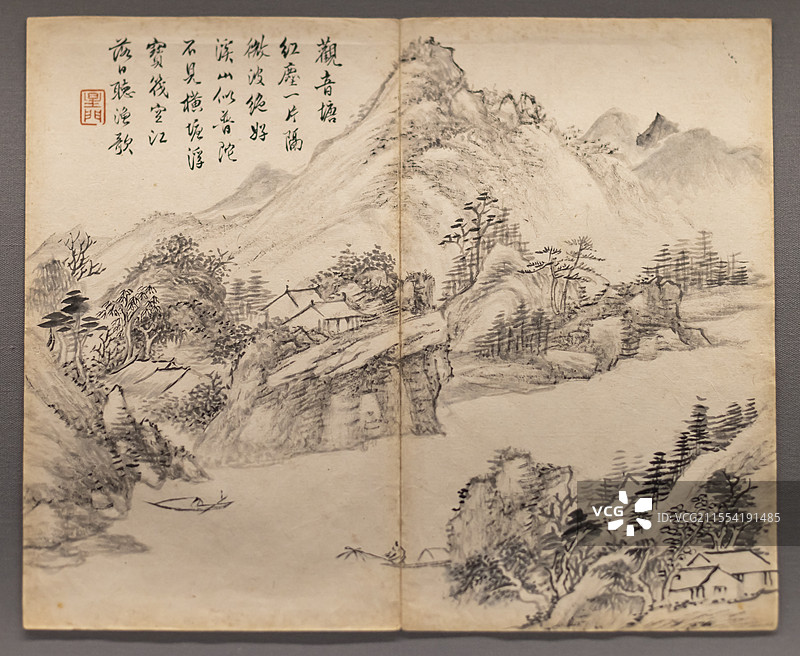 觀音塘
紅塵一片隔
微波絶好
溪山似普陀
不見橫塘浮
寶筏空江
落日聽漁歌
VCG
ID:VCG211554191485